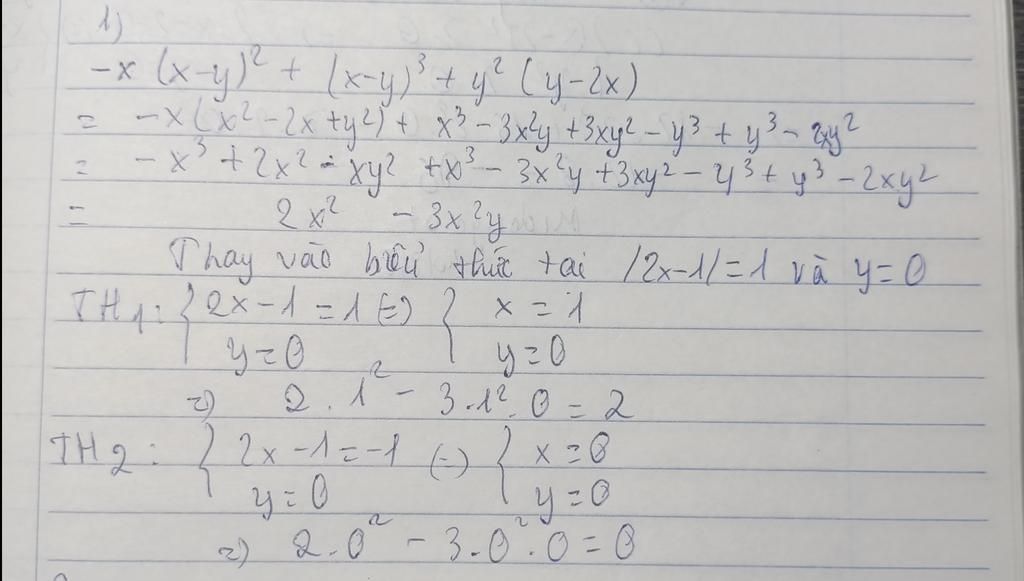 1)
-x (x-y)² + (x-y)³ + y² (y-2x)
= -x(x² - 2x + y²) + x³ - 3x²y + 3xy² - y³ + y³ - 2xy²
= -x³ + 2x² - xy² + x³ - 3x²y + 3xy² - y³ + y³ - 2xy²
= 2x² - 3x²y
Thay vào biểu thức tại /2x-1/ = 1 và y = 0
TH1: { 2x - 1 = 1 (=) { x = 1
y = 0 y = 0
=) 2 . 1² - 3 . 1² . 0 = 2
TH2: { 2x - 1 = -1 (=) { x = 0
y = 0 y = 0
=) 2 . 0² - 3 . 0² . 0 = 0